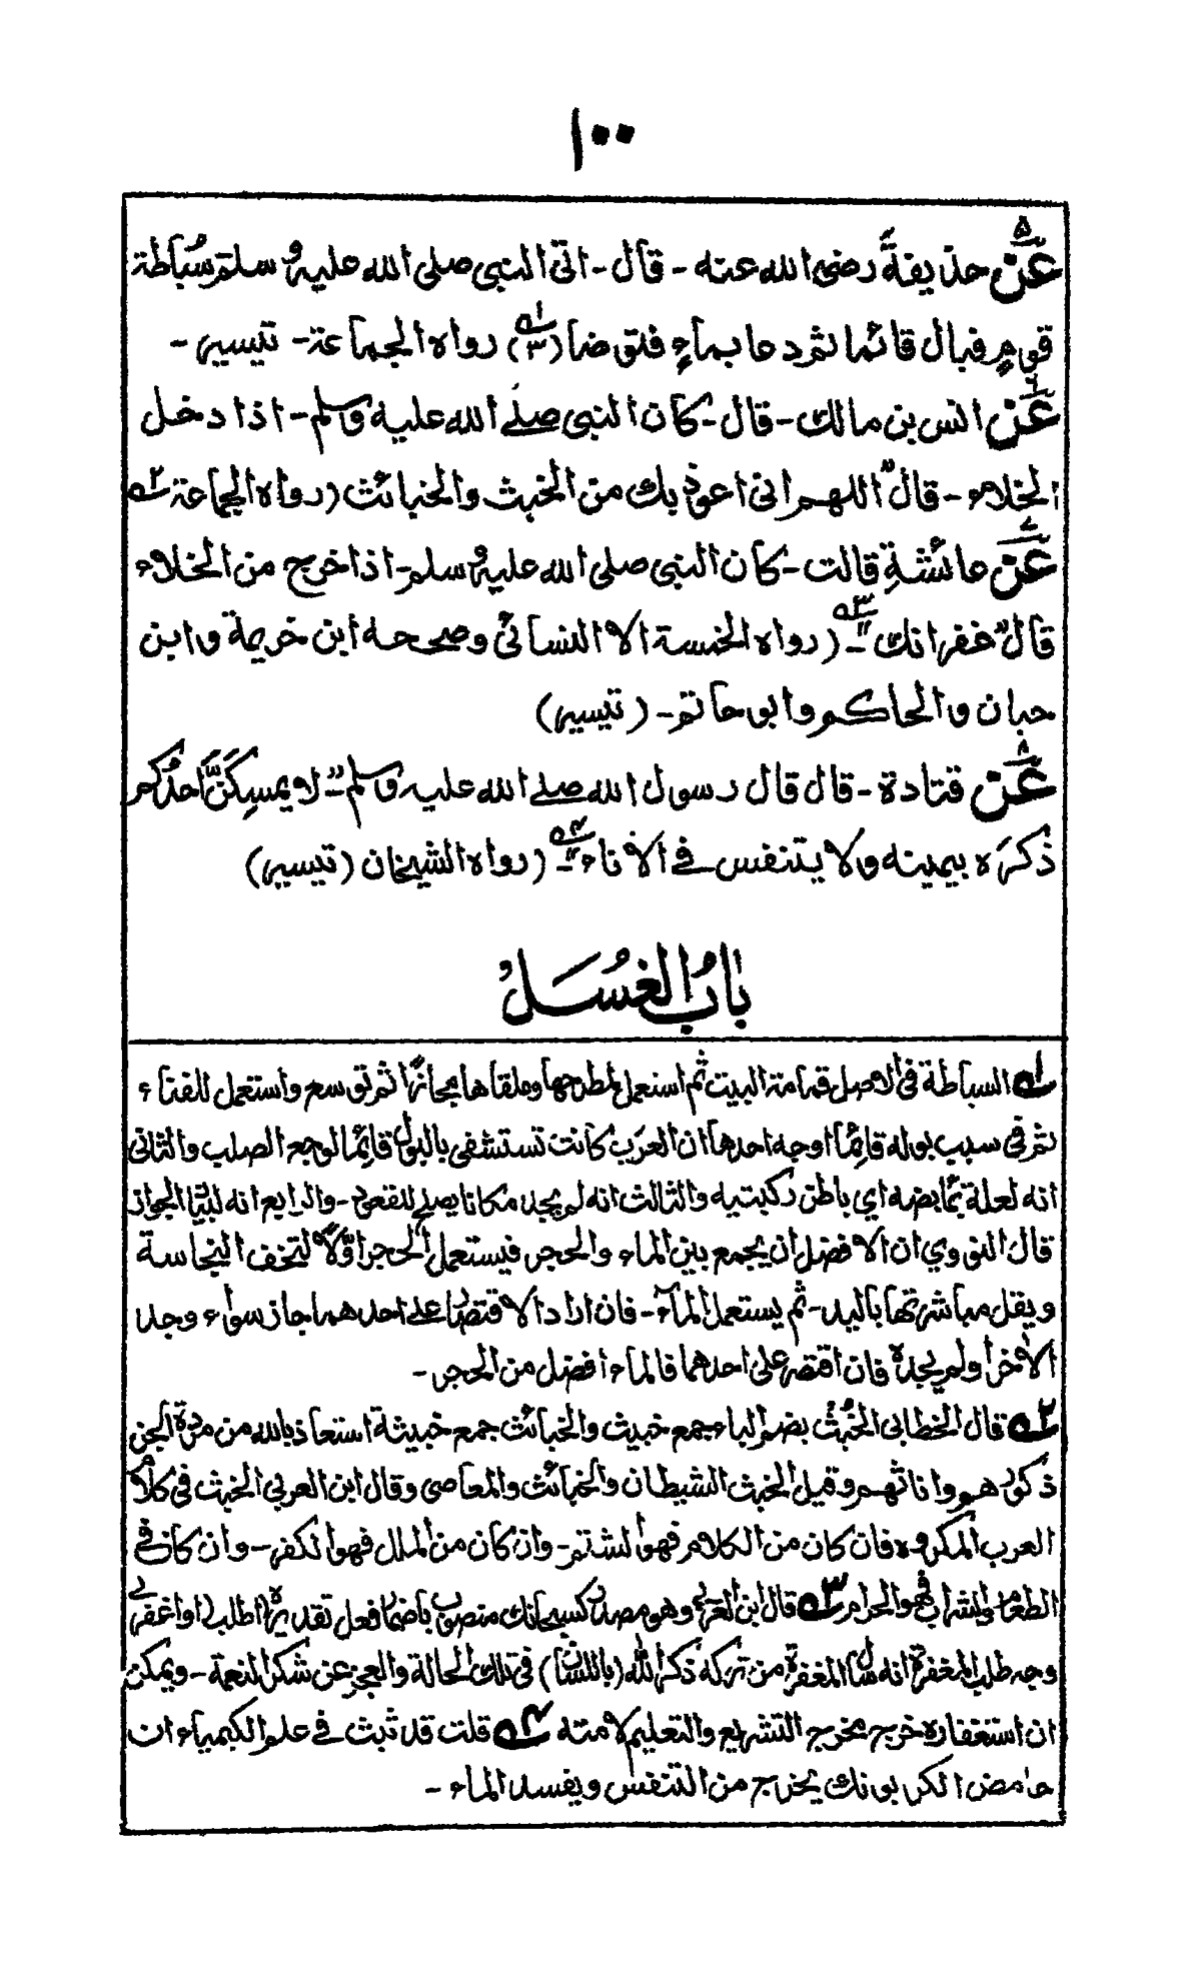 ١٠٠
٥
عَنْ حذيفةَ رضي الله عنه - قال - اتى النبي صلى الله عليه وسلم سُباطة
قومٍ فبال قائما ثم دعا بماءٍ فتوضا (٣) ١ه رواه الجماعة - تيسير -
٦
عَنْ انس بن مالك - قال - كان النبي صلى الله عليه وسلم - اذا دخل
الخلاء - قال "اللهم انى اعوذ بك من الخبث والخبائث (رواه الجماعة ٢ه
٧
عَنْ عائشةِ قالت - كان النبي صلى الله عليه وسلم - اذا خرج من الخلاء
قال "غفرانك" - ٣ه (رواه الخمسة الا النسائى وصححه ابن خزيمة وابن
حبان والحاكم وابو حاتم - (تيسير)
٨
عَنْ قتادة - قال قال رسول الله صلى الله عليه وسلم "- لا يمسِكَنَّ احدُكم
ذكرَه بيمينه ولا يتنفس فى الاناء" - ٤ه (رواه الشيخان (تيسير)
بابُ الغُسَلُ
١ه السباطة فى الاصل قمامة البيت ثم استعمل لمطرحها وملقاها مجازاً ثم توسع واستعمل للفناء
ثم فى سبب بوله قائماً اوجه احدها ان العرب كانت تستشفى بالبول قائماً لوجع الصلب والثانى
انه لعلة بمأبضه اي باطن ركبتيه والثالث انه لم يجد مكانا يصلح للقعود - والرابع انه لبيان الجواز
قال النووي ان الافضل ان يجمع بين الماء والحجر فيستعمل الحجر اوّلاً لتخف النجاسة
ويقل مباشرتها باليد - ثم يستعمل الماء - فان اراد الاقتصار على احدهما جاز سواء وجد
الاٰخر او لم يجده فان اقتصر على احدهما فالماء افضل من الحجر -
٢ه قال الخطابى الخُبُث بضم الباء جمع خبيث والخبائث جمع خبيثة استعاذ بالله من مردة الجن
ذكورهم واناثهم وقيل الخبث الشيطان والخبائث والمعاصى وقال ابن العربى الخبث فى كلام
العرب المكروه فان كان من الكلام فهو الشتم - وان كان من الملل فهو الكفر - وان كان فى
الطعام والشراب فهو الحرام ٣ه قال ابن العربى وهو مصدر كسبحانك منصوب باضمار فعل تقديره اطلب او اغفر لى
وجه طلب المغفرة انه سأل المغفرة من تركه ذكر الله (باللسان) فى تلك الحالة والعجز عن شكر النعمة - ويمكن
ان استغفاره خرج مخرج التشريع والتعليم لامته ٤ه قلت قد ثبت فى علم الكيمياء ان
حامض الكربونك يخرج من التنفس ويفسد الماء -